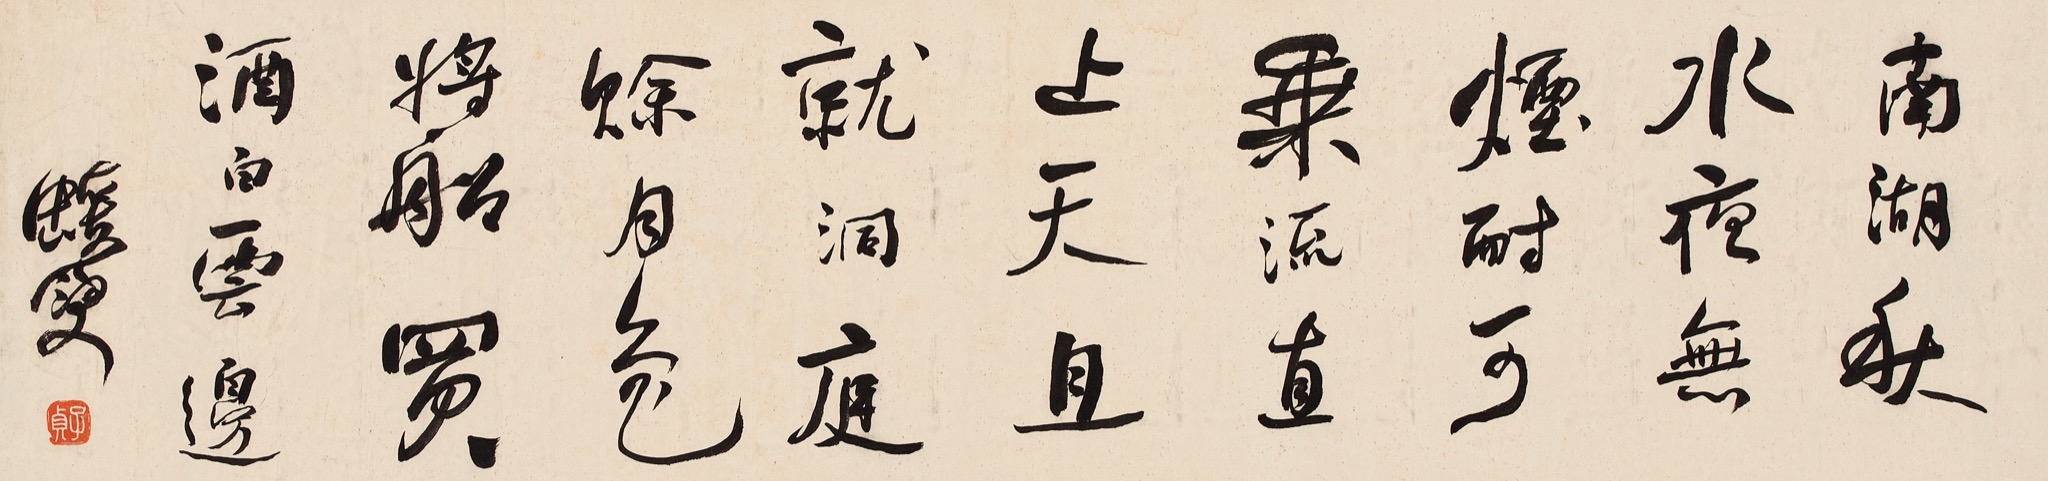 南湖秋
水夜無
煙耐可
乘流直
上天且
就洞庭
賒月色
將船買
酒白雲邊
蝯叟
子貞